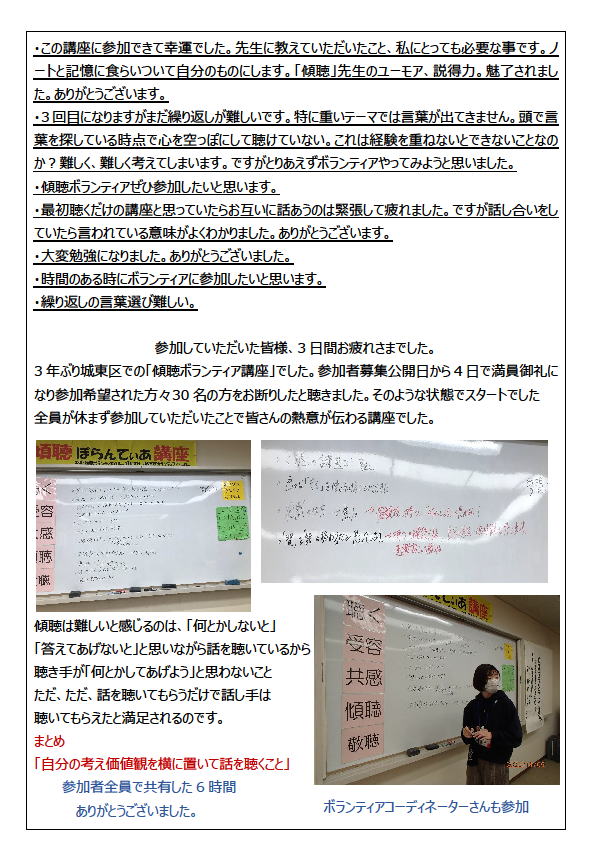 ・この講座に参加できて幸運でした。先生に教えていただいたこと、私にとっても必要な事です。ノ
ートと記憶に食らいついて自分のものにします。「傾聴」先生のユーモア、説得力。魅了されまし
た。ありがとうございます。
・3回目になりますがまだ繰り返しが難しいです。特に重いテーマでは言葉が出てきません。頭で言
葉を探している時点で心を空っぽにして聴けていない。これは経験を重ねないとできないことなの
か？難しく、難しく考えてしまいます。ですがとりあえずボランティアやってみようと思いました。
・傾聴ボランティアぜひ参加したいと思います。
・最初聴くだけの講座と思っていたらお互いに話あうのは緊張して疲れました。ですが話し合いをし
ていたら言われている意味がよくわかりました。ありがとうございます。
・大変勉強になりました。ありがとうございました。
・時間のある時にボランティアに参加したいと思います。
・繰り返しの言葉選び難しい。
参加していただいた皆様、3日間お疲れさまでした。
3年ぶり城東区での「傾聴ボランティア講座」でした。参加者募集公開日から4日で満員御礼に
なり参加希望された方々30名の方をお断りしたと聴きました。そのような状態でスタートでした
全員が休まず参加していただいたことで皆さんの熱意が伝わる講座でした。
傾聴 ぼらんてぃあ 講座
受容
共感
傾聴
敬聴
傾聴は難しいと感じるのは、「何とかしないと」
「答えてあげないと」と思いながら話を聴いているから
聴き手が「何とかしてあげよう」と思わないこと
ただ、ただ、話を聴いてもらうだけで話し手は
聴いてもらえたと満足されるのです。
まとめ
「自分の考え価値観を横に置いて話を聴くこと」
参加者全員で共有した6時間
ありがとうございました。
講座
聴く
受容
共感
傾聴
敬聴
ボランティアコーディネーターさんも参加